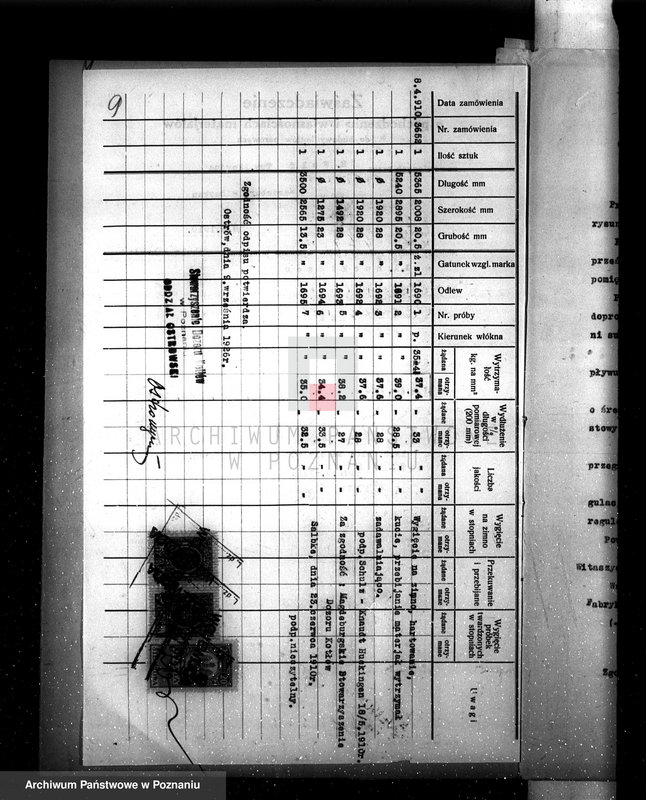 9
Data zamówienia
Nr. zamówienia
Ilość sztuk
Długość mm
Szerokość mm
Grubość mm
Gatunek wzgl. marka
Odlew
Nr. próby
Kierunek włókna
Wytrzymałość kg. na mm² żądana otrzymana
Wydłużenie w % długości pomiarowej (200 mm) żądane otrzymane
Liczba jakości żądana otrzymana
Wygięcie na zimno w stopniach żądane otrzymane
Przekuwanie i przebijanie żądane otrzymane
Wygięcie próbek twardzonych w stopniach żądane otrzymane
Uwagi
8.4.910 3652 1 5365 2008 20.5 ż.zl 1690 1 p. 35-44 37.4 - 33 " "
1 5240 2895 20.5 " 1691 2 " " 39.0 - 28.5 " "
1 ø 1920 28 " 1692 3 " " 37.6 - 28 " "
1 ø 1920 28 " 1692 4 " " 37.6 - 28 " "
1 ø 1492 28 " 1693 5 " " 38.2 - 27 " "
1 ø 1275 23 " 1694 6 " " 34.4 - 33.5 " "
1 3500 2565 13.5 " 1695 7 " " 35.0 - 32.5 " "
Wygięcie na zimno, hartowanie,
kucie, przebijanie materjał wytrzymał
zadawalniająco.
podp. Schulz - Knaudt Huckingen 18/5.1910r.
Za zgodność: Magdeburgskie Stowarzyszenie
Dozoru Kotłów
Salbke, dnia 23.czerwca 1910r.
podp. nieczytelny.
Zgodność odpisu potwierdza
Ostrów, dnia 9.września 1926r.
Stowarzyszenie Dozoru Kotłów
w Poznaniu
ODDZIAŁ OSTROWSKI
ARCHIWUM PAŃSTWOWE
W POZNANIU
Archiwum Państwowe w Poznaniu